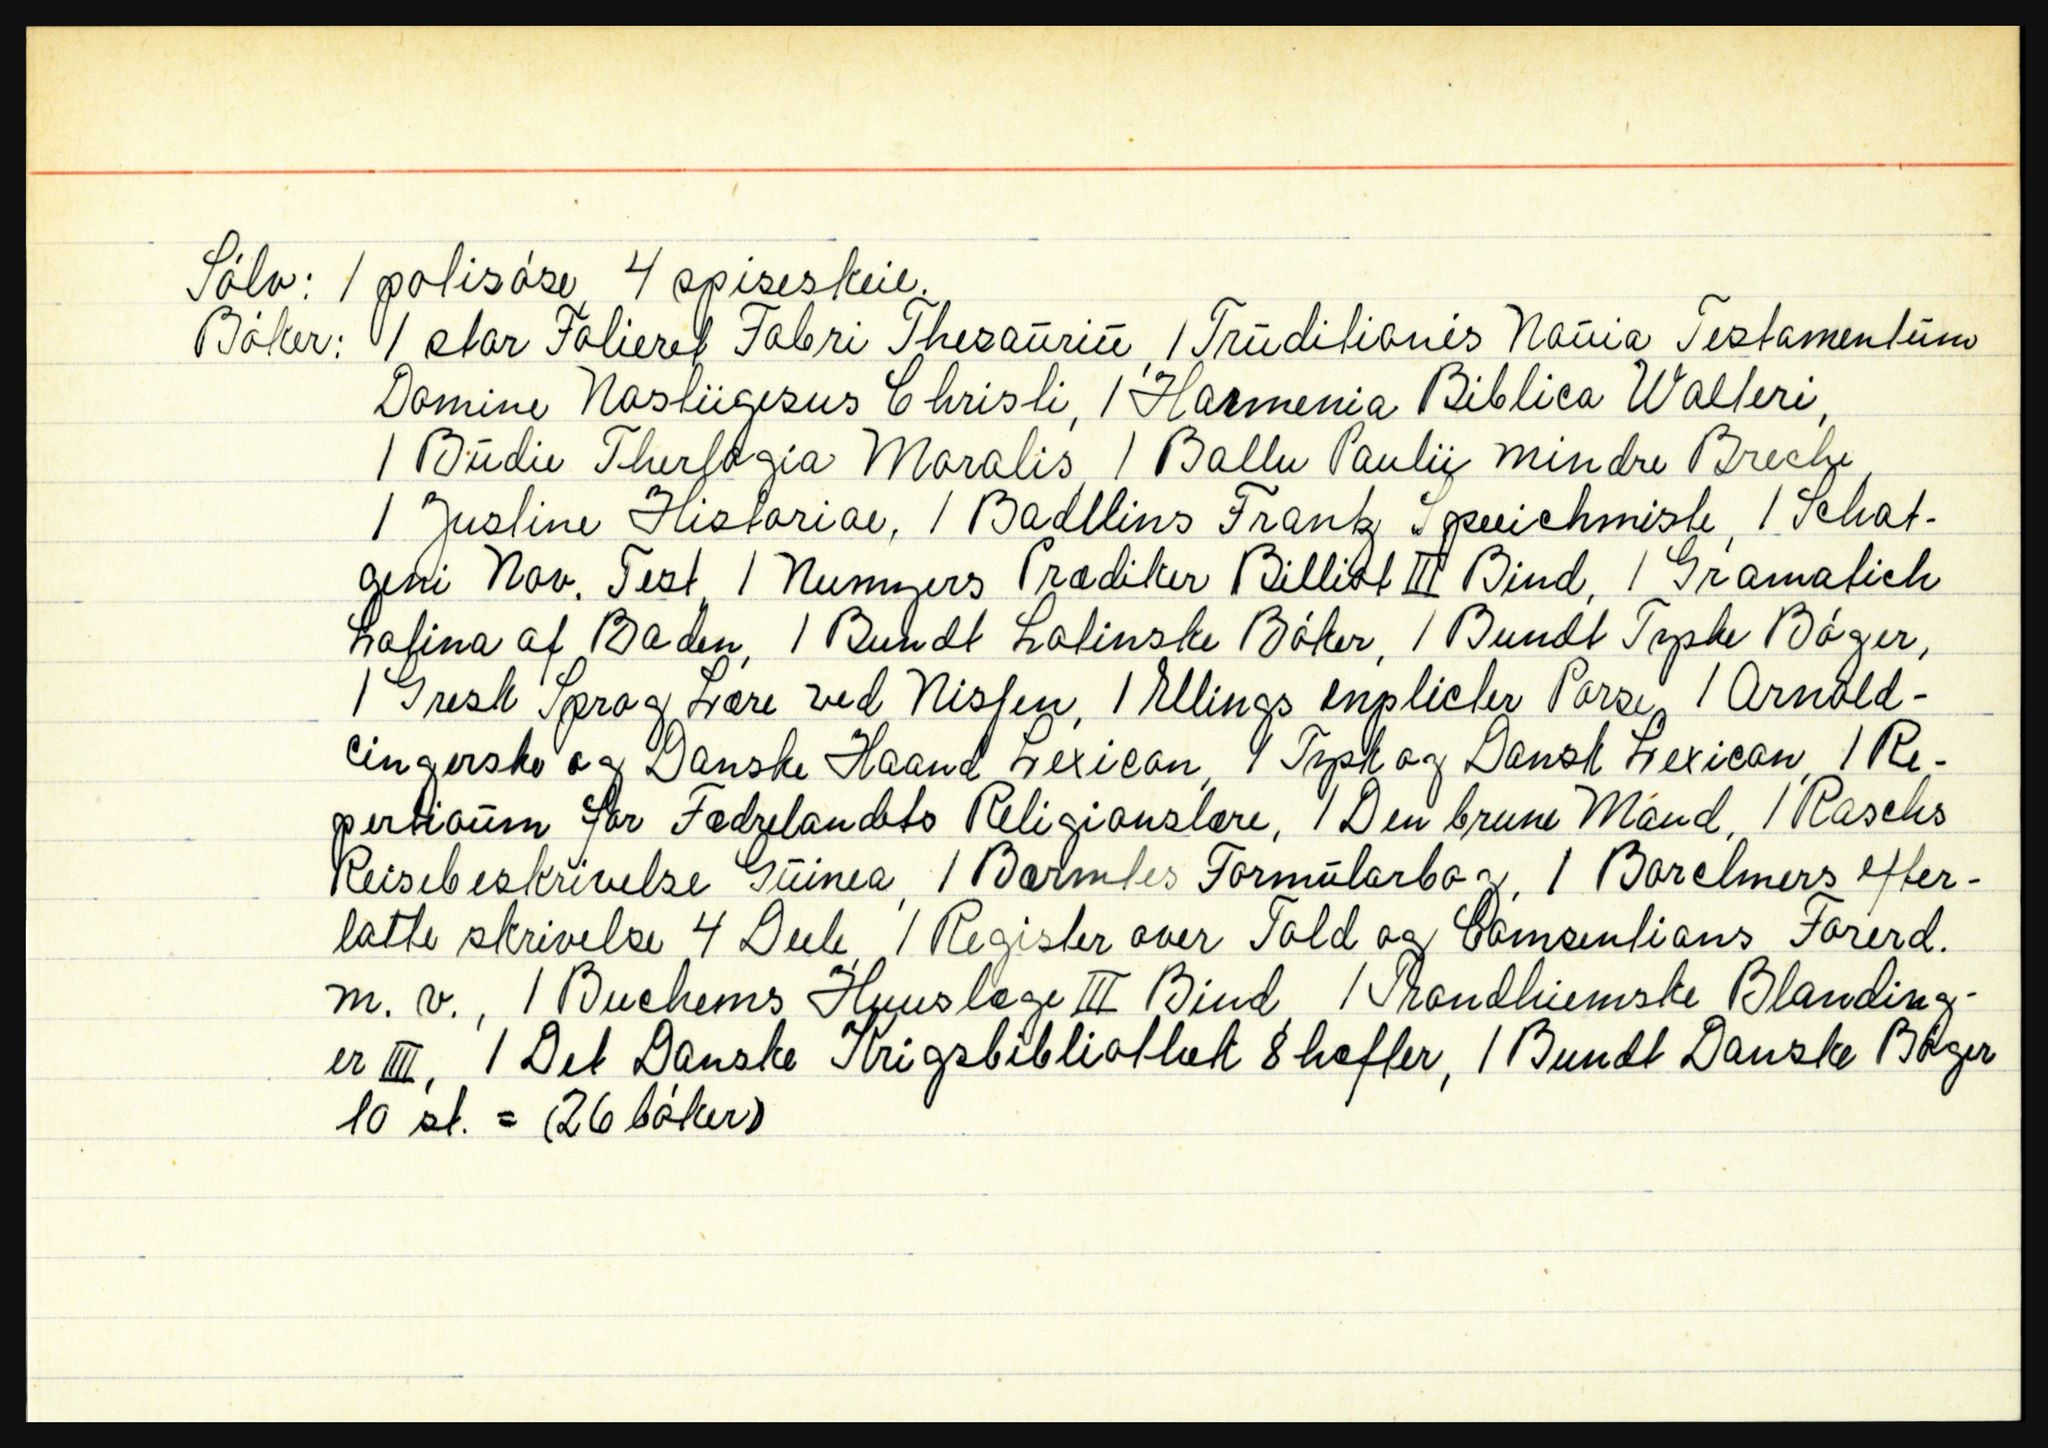 Sólv: 1 polisóse, 4 spiseskeie.
Bóker: 1 stor Folieret Fabri Thesaūriū, 1 Trūditionés Noūia Testamentūm
Domine Nostiigesus Christi, 1 Harmenia Biblica Walteri,
1 Būdie Therlogia Moralis, 1 Ballu Paulii mindre Breche,
1 Justine Historiae, 1 Badllins Frantz Speeichmiste, 1 Schat-
geni Nov. Test, 1 Numyers Prædiker Bibliot III Bind, 1 Gramatich
Latina af Baden, 1 Bundt Latinske Bóker, 1 Bundt Tyske Bóger,
1 Gresk Sprog Lære ved Nissen, 1 Ellings enplicter Parse, 1 Arnold-
cingerske og Danske Haand Lexicon, 1 Tysk og Dansk Lexicon, 1 Re-
pertioūm for Fædrelandets Religionslære, 1 Den brune Mand, 1 Raschs
Reisebeskrivelse Gūinea, 1 Bærmles Formūlarbog, 1 Borchners efter-
latte skrivelse 4 Deele, 1 Register over Told og Comsentions Forerd.
m. v., 1 Buchems Huuslæge III Bind, 1 Trondhiemske Blanding-
er III, 1 Det Danske Krigsbibliothek 8 hæfter, 1 Bundt Danske Bóger
10 st. = (26 bóker)